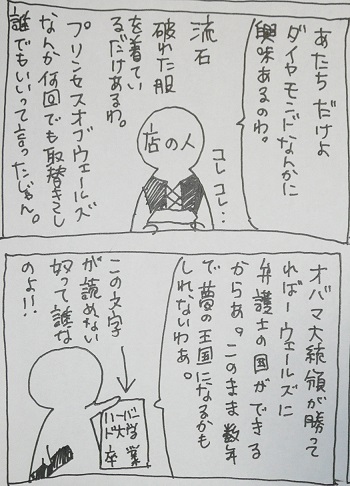 あたちだけよ
ダイヤモンドなんかに
興味あるのわ。
流石
破れた服
を着てい
るだけあるわ。
プリンセスオブウェールズ
なんか何回でも取替きさし
誰でもいいって言ったじゃん。
店の人
コレコレ··
オバマ大統領が勝って
ればーウェールズに
弁護士の国ができる
からあ。このまま数年
で夢の王国になるかも
しれないわぁ。
この文字
が読めない
奴って誰な
のよ!!
ハーバー
ド大学
卒業